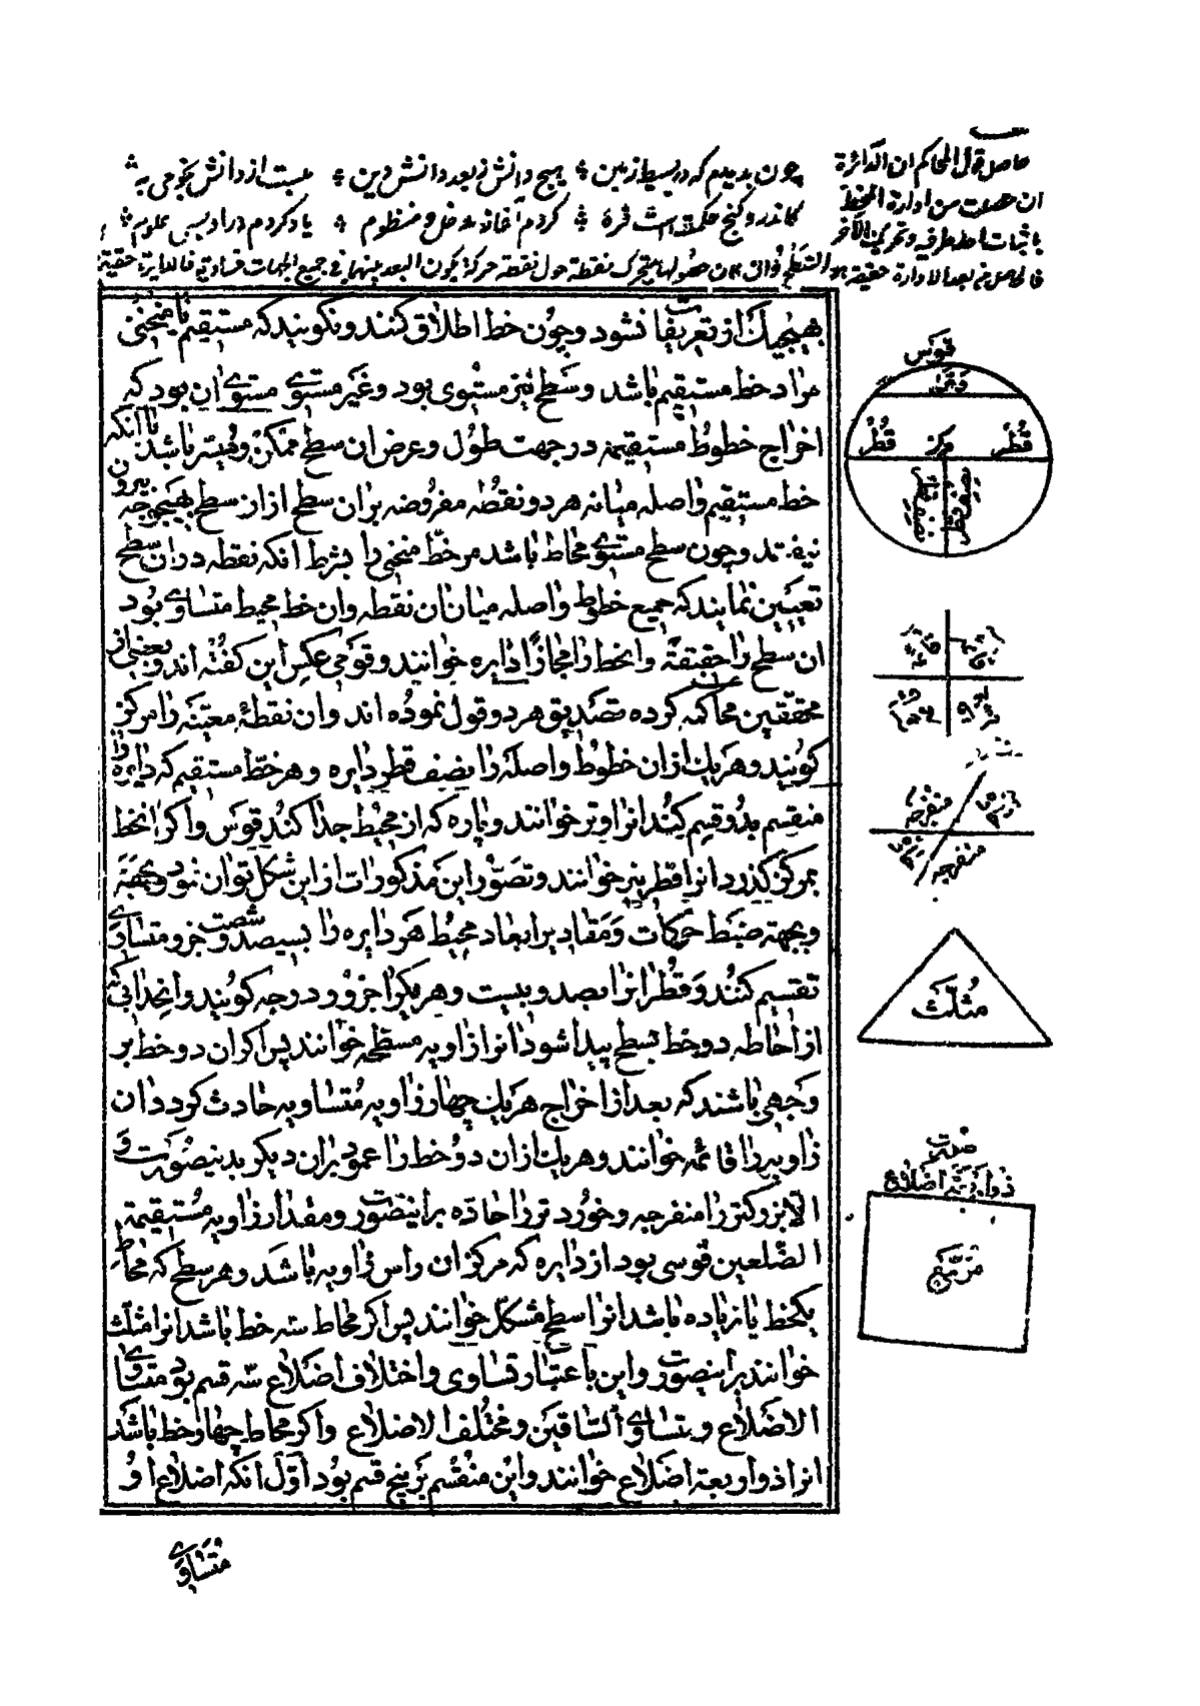 حاصل قول المحاکم ان الدائرة
ان حصلت من ادارة الخط
باثبات احد طرفیه وتحریک الآخر
چون بدیدم که در بسیط زمین ؛ هیچ دانش ز بعد دانش دین ؛ نیست از دانش نجومی به ؛
کاندرو گنج حکمت است فره ؛ کردم آغاز مدخل منظوم ؛ یاد کردم درا و بسی علوم ؛
بعد الادارة حقیقة حول نقطة حرکة یکون البعد بینهما فی جمیع الجهات
بهیچیک از تعریفات نشود و چون خط اطلاق کنند و نگویند که مستقیم یا منحنی
مراد خط مستقیم باشد و سطح نیز مستوی بود و غیر مستوی مستوی ان بود که
اخراج خطوط مستقیمه در جهت طول و عرض ان سطح ممکن و میسر باشد یا انکه
خط مستقیم واصله میانه هر دو نقطه مفروضه بران سطح از ان سطح بهیچوجه بیرون
نیفتد و چون سطح مستوی محاط باشد مر خط منحنی را بشرط انکه نقطه در ان سطح
تعیین نمایند که جمیع خطوط واصله میان ان نقطه و ان خط محیط متساوی بود
ان سطح را حقیقة و انخط را مجازا دایره خوانند و قومی عکس این گفته اند و بعضی از
محققین محاکمه کرده تصدیق هر دو قول نموده اند و ان نقطهٔ معینه را مرکز
گویند و هر یک از ان خطوط واصله را نصف قطر دایره و هر خط مستقیم که دایره را
منقسم بدو قسم کند انرا وتر خوانند و پاره که از محیط جدا کند قوس و اگر انخط
بمرکز گذرد انرا قطر نیز خوانند و تصور این مذکورات از این شکل توان نمود و بجهة
و بجهة ضبط حرکات و مقادیر ابعاد محیط هر دایره را بسیصد و شصت جزو متساوی
تقسیم کنند و قطر انرا بصد و بیست و هر یکرا جزو و درجه گویند و انحدابی که
از احاطه دو خط بسطح پیدا شود انرا زاویه مسطحه خوانند پس اگر ان دو خط بر
وجهی باشند که بعد از اخراج هر یک چهار زاویه متساویه حادث گردد ان
زاویه را قائمه خوانند و هر یک از ان دو خط را عمود بران دیگر بدینصورت و
الا بزرگتر را منفرجه و خورد تر را حاده براینصورت و مقدار زاویه مستقیمة
الضلعین قوسی بود از دایره که مرکز ان راس زاویه باشد و هر سطح که محاط
بیکخط یا زیاده باشد انرا سطح مشکل خوانند پس اگر محاط سه خط باشد انرا مثلث
خوانند براینصورت و این باعتبار تساوی و اختلاف اضلاع سه قسم بود متساوی
الاضلاع و متساوی الساقین و مختلف الاضلاع و اگر محاط چهار خط باشد
انرا ذو اربعة اضلاع خوانند و این منقسم بر پنج قسم بود اول انکه اضلاع او
متساوی
قوس
وتر
قطر مرکز قطر
نصف قطر نصف قطر
قائمه قائمه
قائمه قائمه
حاده منفرجه
منفرجه حاده
مثلث
صورت
ذو اربعة اضلاع
مربع